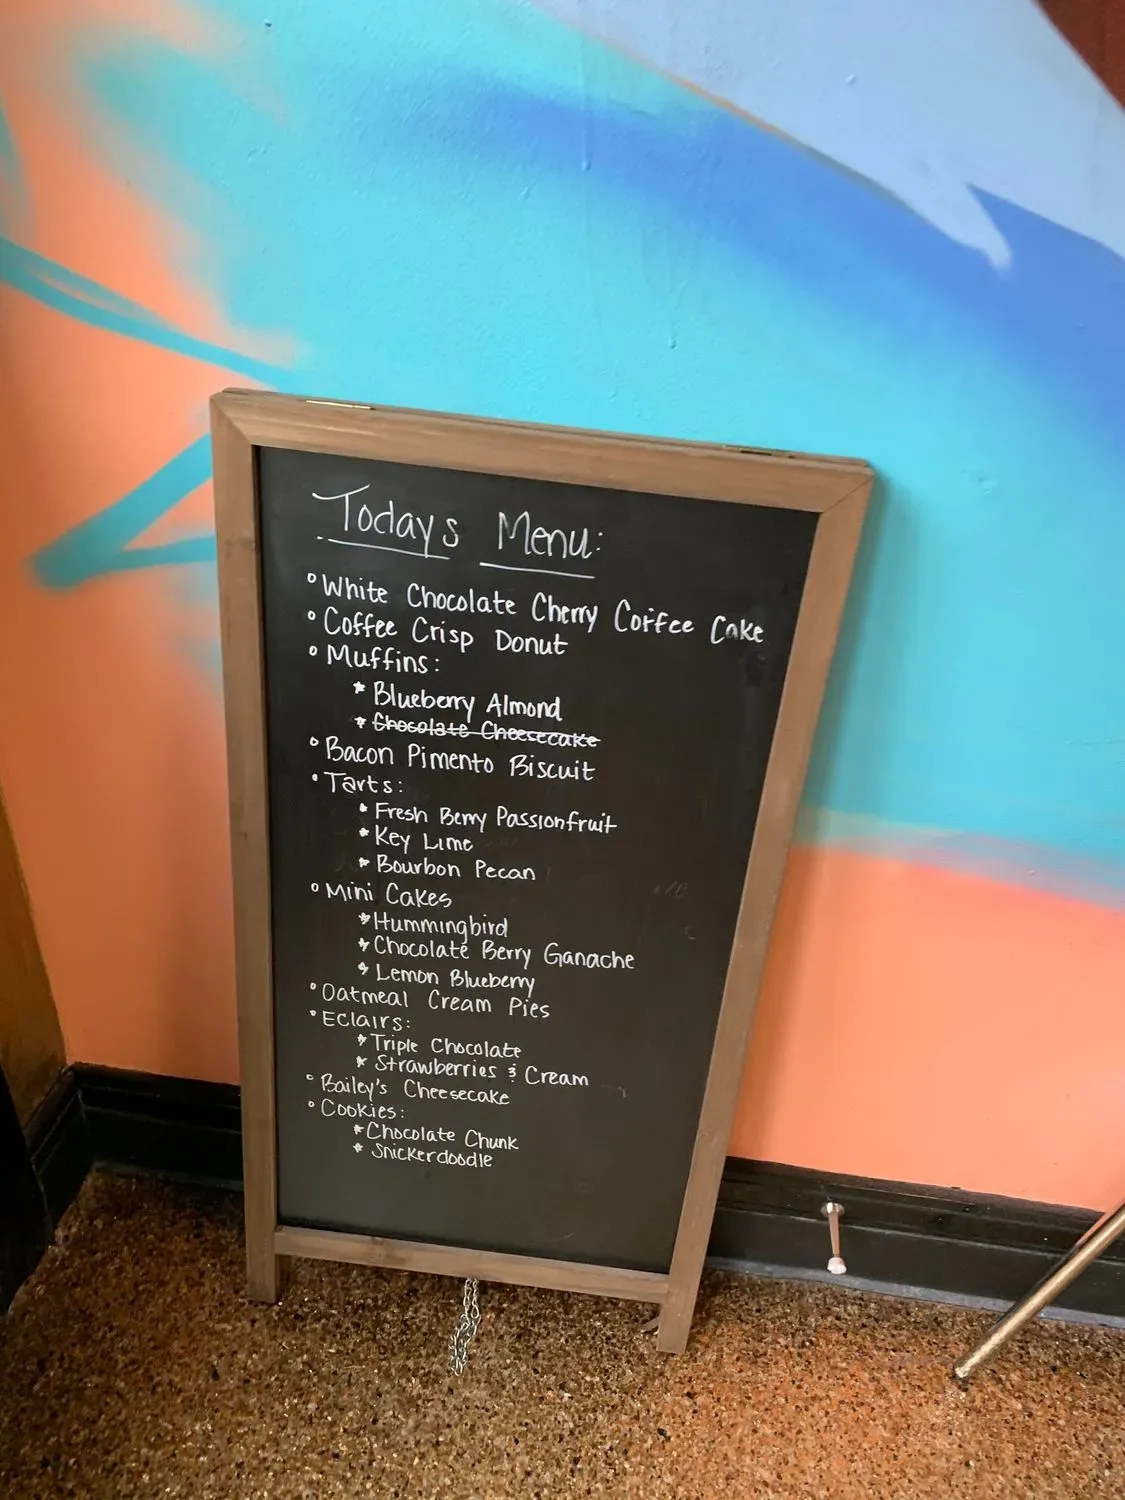 Todays Menu:
° White Chocolate Cherry Coffee Cake
° Coffee Crisp Donut
° Muffins:
* Blueberry Almond
* Chocolate Cheesecake
° Bacon Pimento Biscuit
° Tarts:
* Fresh Berry Passionfruit
* Key Lime
* Bourbon Pecan
° Mini Cakes
* Hummingbird
* Chocolate Berry Ganache
* Lemon Blueberry
° Oatmeal Cream Pies
° Eclairs:
* Triple Chocolate
* Strawberries & Cream
° Bailey's Cheesecake
° Cookies:
* Chocolate Chunk
* Snickerdoodle